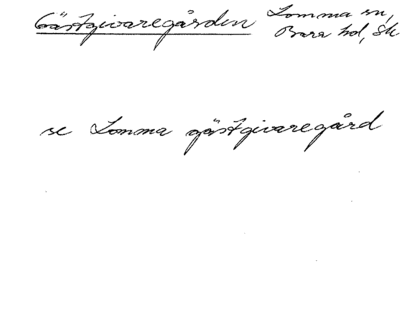 Gästgivaregården Lomma sn,
Bara hd, Sk.
se Lomma gästgivaregård